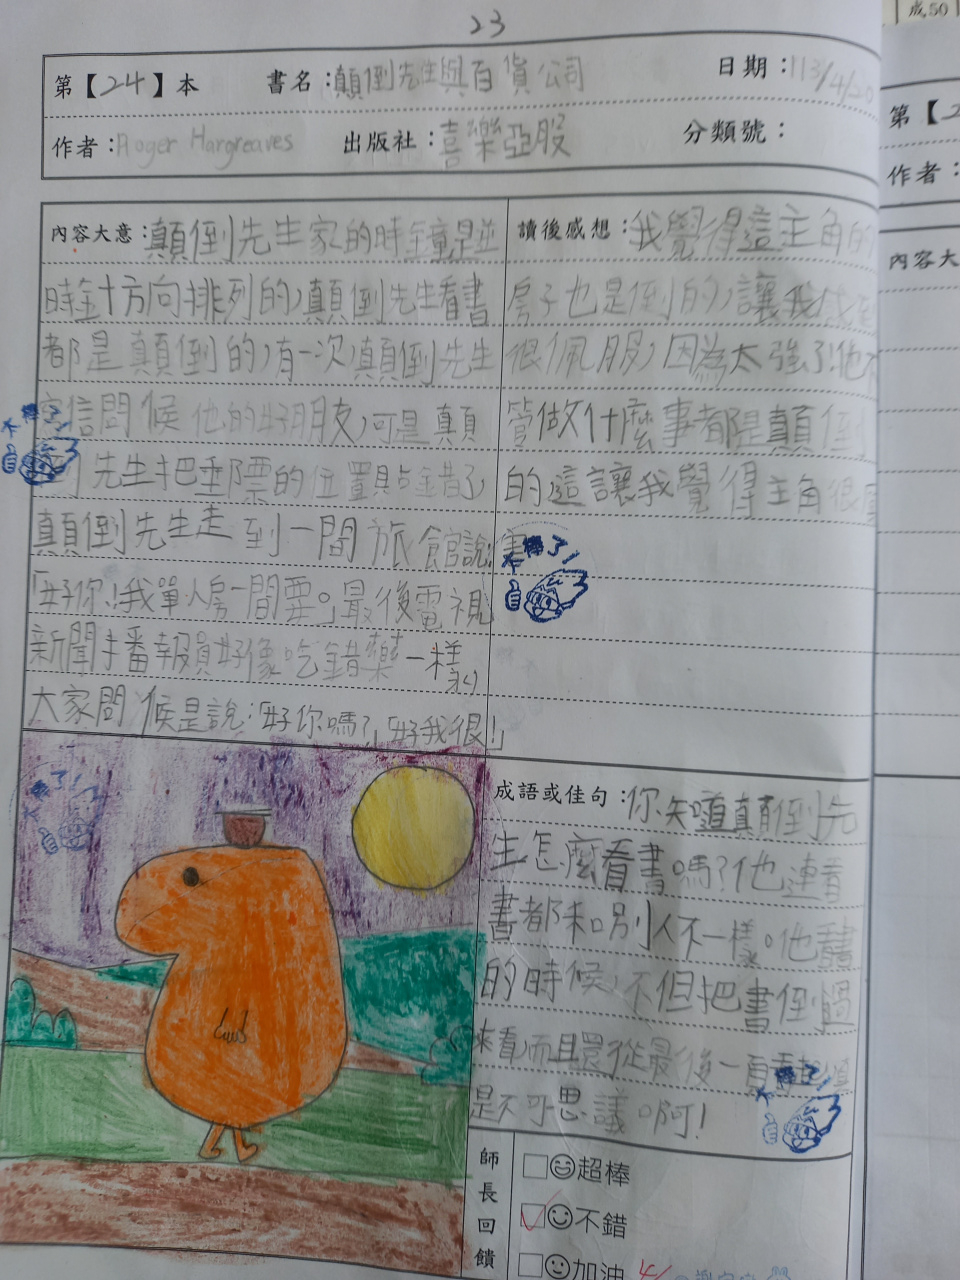 23
成50
第【24】本 書名：顛倒先生與百貨公司 日期：113/4/20
作者：Roger Hargreaves 出版社：喜樂亞股 分類號：
第【2
作者：
內容大意：顛倒先生家的時鐘是逆
時針方向排列的，顛倒先生看書
都是顛倒的，有一次，顛倒先生
寫信問候他的好朋友，可是顛
倒先生把郵票的位置貼錯了
顛倒先生走到一間旅館說：
「好你！我單人房一間要。」最後電視
新聞播報員好像吃錯藥一樣，
大家問候是說：「好你嗎？」「好我很！」
讀後感想：我覺得這主角的
房子也是倒的，讓我感到
很佩服，因為太強了！他不
管做什麼事都是顛倒
的這讓我覺得主角很厲
害
了不得了！
了不得了！
了不得了！
成語或佳句：你知道顛倒先
生怎麼看書嗎？他連看
書都和別人不一樣。他讀書
的時候，不但把書倒過
來看，而且還從最後一頁看起，真
是不可思議啊！
了不得了！
師長回饋
超棒
不錯
加油
內容大